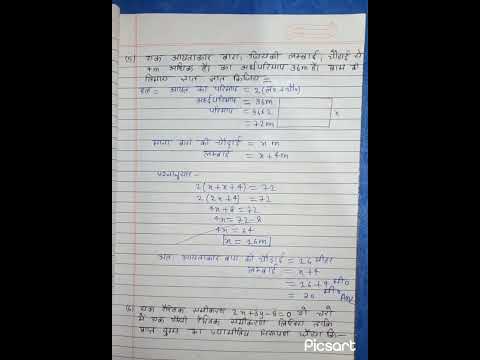 (5) एक आयताकार बाग, जिसकी लम्बाई, चौड़ाई से
4m अधिक है। का अर्धपरिमाप 36m है। बाग की
विमाएं ज्ञात कीजिए =
हल = आयत का परिमाप = 2(ल०+चौ०)
अर्धपरिमाप = 36m
परिमाप = 36x2
= 72m
x
माना बाग की चौड़ाई = x m
लम्बाई = x+4m
प्रश्नानुसार -
2(x+x+4)=72
2(2x+4) =72
4x+8=72
4x=72-8
4x=64
x = 16m
अतः आयताकार बाग की चौड़ाई = 16 मीटर
लम्बाई = x+4
= 16+4 मी०
= 20 मी० Ans
(6) एक रैखिक समीकरण 2x+3y-8=0 दी गयी
है एक ऐसी रैखिक समीकरण लिखिए ताकि
प्राप्त युग्म का ज्यामितीय निरूपण जैसा कि-
Picsart